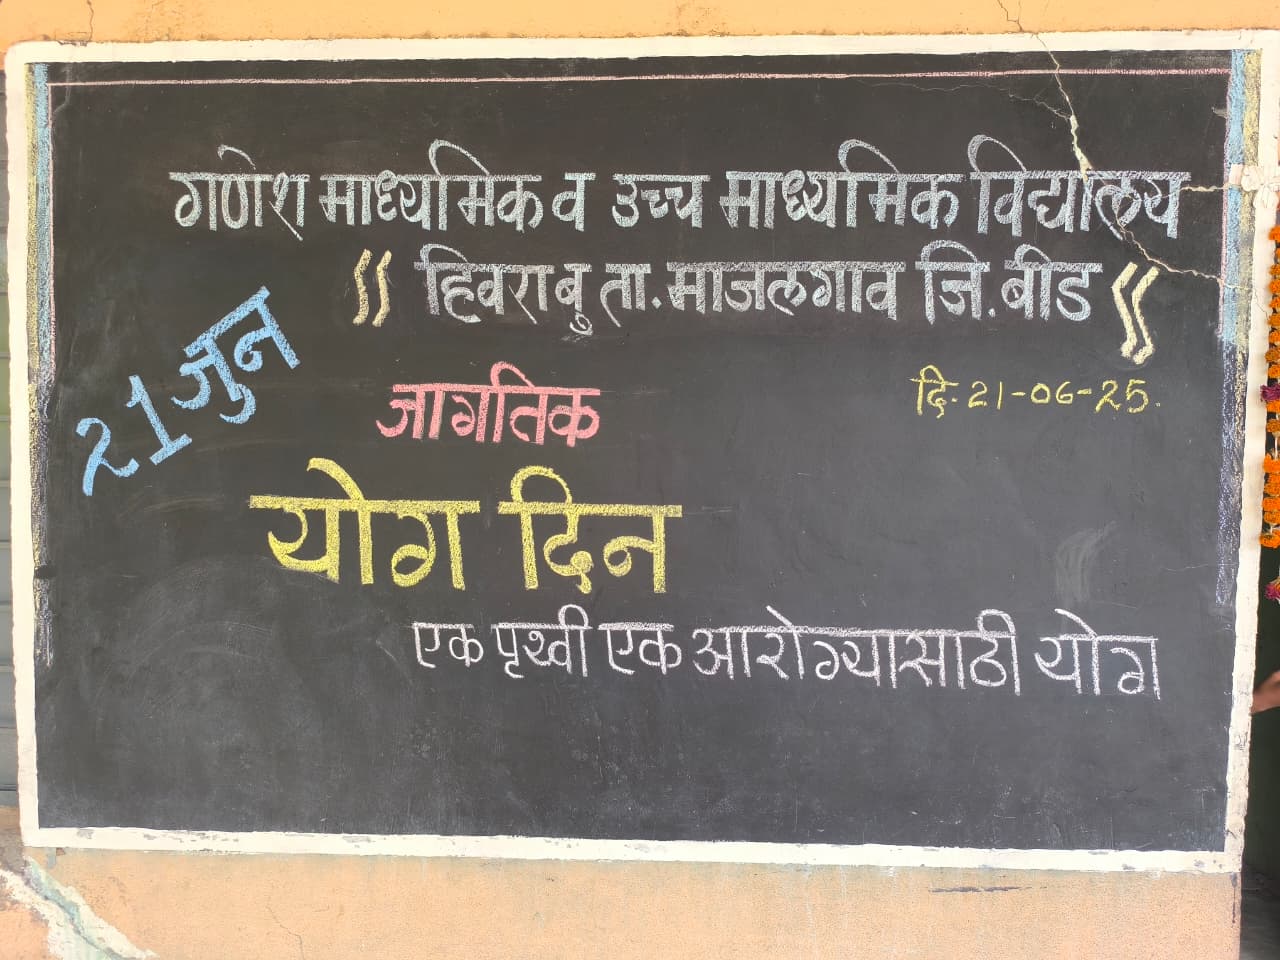 गणेश माध्यमिक व उच्च माध्यमिक विद्यालय
हिवरा बु ता. माजलगाव जि. बीड
21 जुन
दि. 21-06-25.
जागतिक
योग दिन
एक पृथ्वी एक आरोग्यासाठी योग